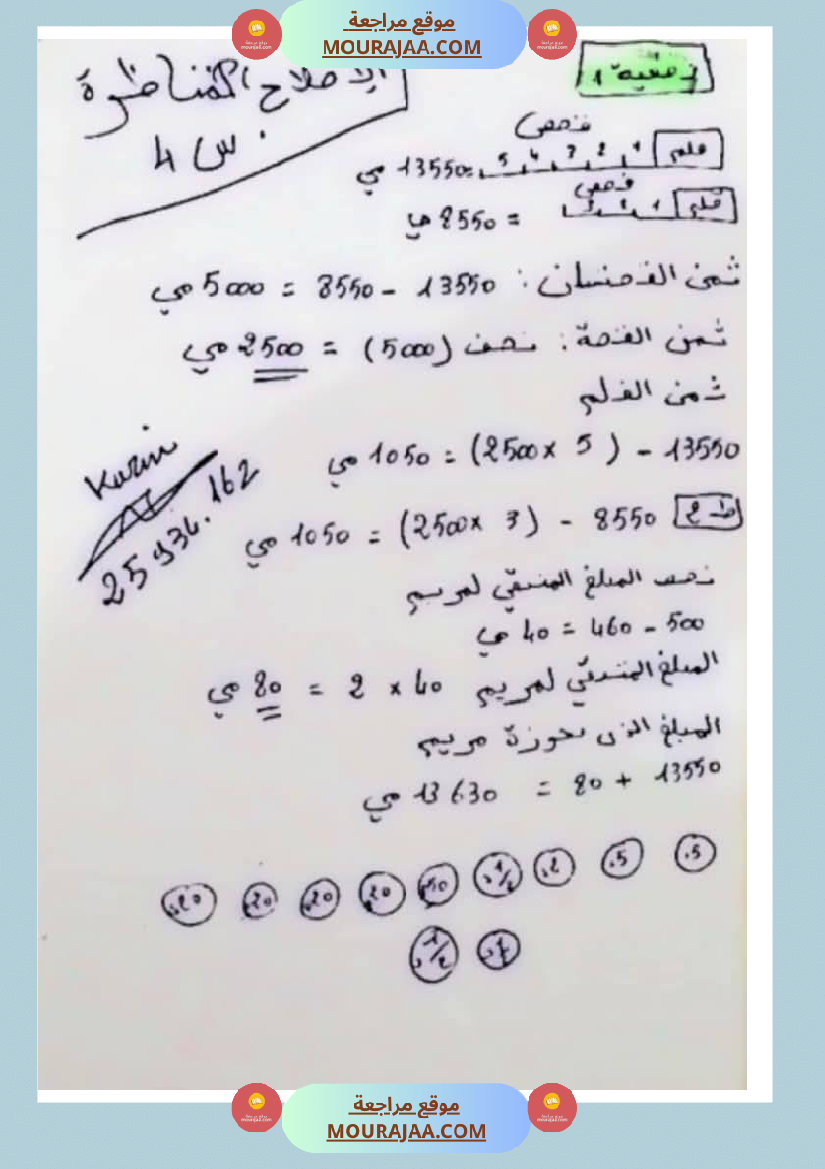 موقع مراجعة
MOURAJAA.COM
وضعية 1
الإصلاح المناظرة
س 4
قصص
قلم 1 2 3 4 5 = 13550 مي
قصص
قلم 1 2 3 = 8550 مي
ثمن القصتان : 13550 - 8550 = 5000 مي
ثمن القصة : نصف (5000) = 2500 مي
ثمن القلم
13550 - ( 5 ×2500) = 1050 مي
ط 2 8550 - ( 3 ×2500) = 1050 مي
Karim
25 934.162
نصف المبلغ المتبقي لمريم
500 - 460 = 40 مي
المبلغ المتبقي لمريم 40 × 2 = 80 مي
المبلغ الذي بحوزة مريم
13550 + 80 = 13630 مي
5 5 2 1/2 50 20 20 20 20
1/2
موقع مراجعة
MOURAJAA.COM